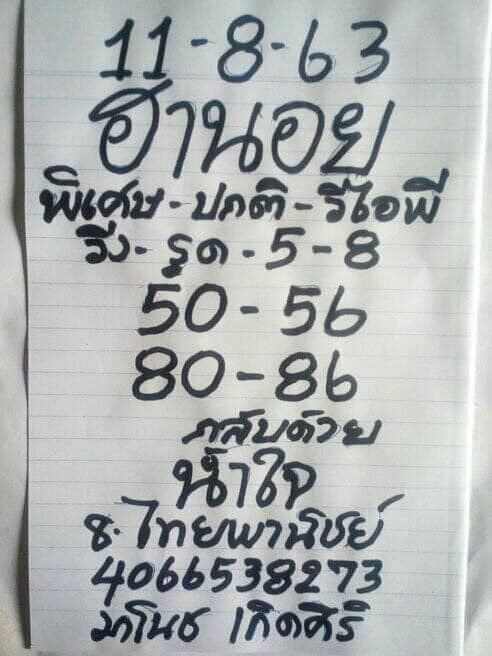 11-8-63
ฮานอย
พิเศษ-ปกติ-วีไอพี
วิ่ง-รูด-5-8
50-56
80-86
กลับด้วย
น้ำใจ
ธ.ไทยพานิชย์
4066538273
มาโนช เกิดศิริ